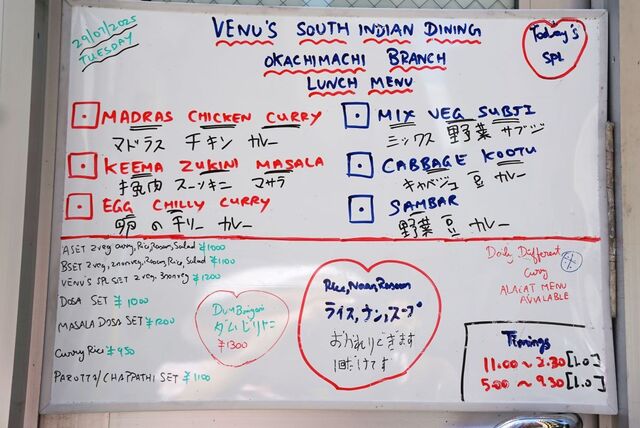 29/07/2025
TUESDAY
VENU'S SOUTH INDIAN DINING
OKACHIMACHI BRANCH
LUNCH MENU
Today's
SPL
MADRAS CHICKEN CURRY
マドラス チキン カレー
KEEMA ZUKINI MASALA
挽肉 ズーッキニ マサラ
EGG CHILLY CURRY
卵 の チリー カレー
MIX VEG SUBJI
ミックス 野菜 サブジ
CABBAGE KOOTU
キャベジュ 豆 カレー
SAMBAR
野菜 豆 カレー
ASET 2veg curry, Rice, Rasam, Salad ¥1000
BSET 2veg, 2nonveg, Rasam, Rice, Salad ¥1100
VENU'S SPL SET 2 veg. 3nonveg ¥1200
DOSA SET ¥1000
MASALA DOSA SET ¥1200
Curry Rice ¥950
PAROTTA/CHAPPATHI SET ¥1100
Dum Biriyani
ダム ビリヤニ
¥1300
Rice, Naan, Rasam
ライス, ナン, スープ
おかわりできます
1回だけです
Daily Different
Curry
ALACAT MENU
AVAILABLE
Timings
11.00 ~ 2.30 [L.O]
5.00 ~ 9.30 [L.O]